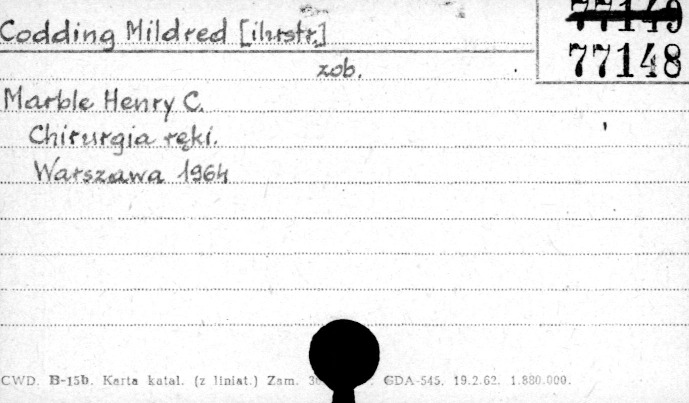 Codding Mildred [ilustr.]
77149
77148
zob.
Marble Henry C.
Chirurgia ręki.
Warszawa 1964
CWD. B-15b. Karta katal. (z liniat.) Zam. GDA-545. 19.2.62. 1.880.000.